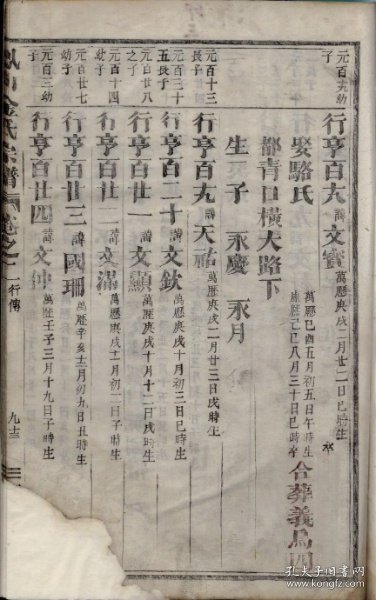 元百九幼子
行亨百六諱文寶萬曆庚戌二月廿二日巳時生
娶駱氏萬曆己酉五月初五日午時生康熙己巳八月三十日巳時卒合葬義烏四
都青口橫大路下
生一子 永慶 永月
元百十三長子
行亨百九諱天祐萬曆庚戌二月廿三日戌時生
元百三十五長子
行亨百二十諱文欽萬曆庚戌十月初三日巳時生
元百廿八之子
行亨百廿一諱文顯萬曆庚戌十月十二日戌時生
元百十四幼子
行亨百廿二諱文滿萬曆庚戌十二月初二日子時生
元百廿七幼子
行亨百廿三諱國珊萬曆辛亥十二月初九日丑時生
元百三幼子
行亨百廿四諱文仲萬曆壬子三月十九日子時生
鳳山金氏宗譜 卷之 行傳 九十三
孔夫子旧书网